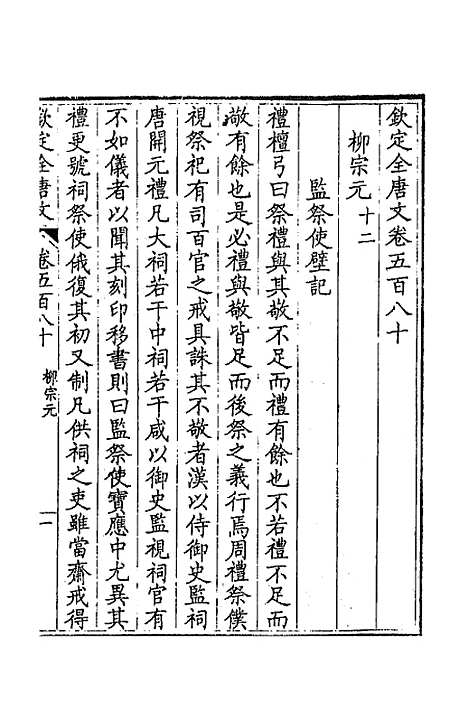 欽定全唐文卷五百八十
柳宗元十二
監祭使壁記
禮檀弓曰祭禮與其敬不足而禮有餘也不若禮不足而
敬有餘也是必禮與敬皆足而後祭之義行焉周禮祭僕
視祭祀有司百官之戒具誅其不敬者漢以侍御史監祠
唐開元禮凡大祠若干中祠若干咸以御史監視祠官有
不如儀者以聞其刻印移書則曰監祭使寶應中尤異其
禮更號祠祭使俄復其初又制凡供祠之吏雖當齋戒得
欽定全唐文
卷五百八十
柳宗元
一